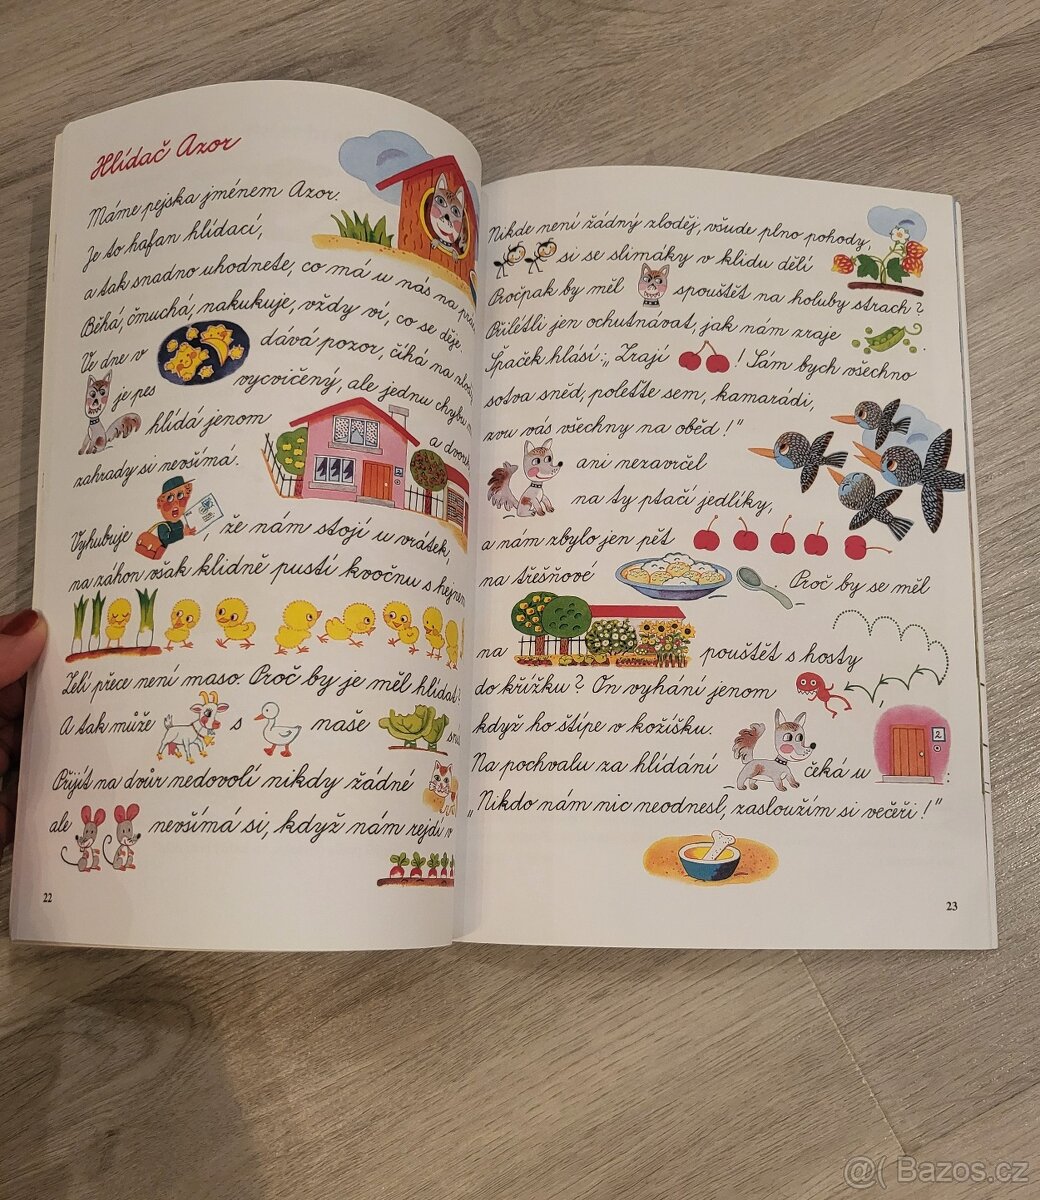 Hlídač Azor
Máme pejska jménem Azor.
Je to hafan hlídací,
a tak snadno uhodnete, co má u nás na
Běhá, čmuchá, nakukuje, vždy ví, co se děje.
Ve dne v dává pozor, číhá na
je pes vycvičený, ale jednu chybu
hlídá jenom a
zahrady si nevšímá.
Vyhubuje , že nám stojí u vrátek,
na záhon však klidně pustí kvočnu s hejnem
Zelí přece není maso. Proč by je měl hlídat?
A tak může s naše
Přijít na dvůr nedovolí nikdy žádné
ale nevšímá si, když nám rejdí v
22
Nikde není žádný zloděj, všude plno pohody,
si se slimáky v klidu dělí
Pročpak by měl spouštět na holuby strach?
Přilétli jen ochutnávat, jak nám zraje .
Špaček hlásí: „Zrají ! Sám bych všechno
sotva sněd, poleťte sem, kamaradi,
zvu vás všechny na oběd!"
ani nezavrčel
na ty ptačí jedlíky,
a nám zbylo jen pět
na třešňové . Proč by se měl
na pouštět s hosty
do křížku? On vyhání jenom
když ho štípe v kožíšku.
Na pochvalu za hlídání čeká u :
2
„Nikdo nám nic neodnesl, zasloužím si večeři!"
23
@( Bazos.cz